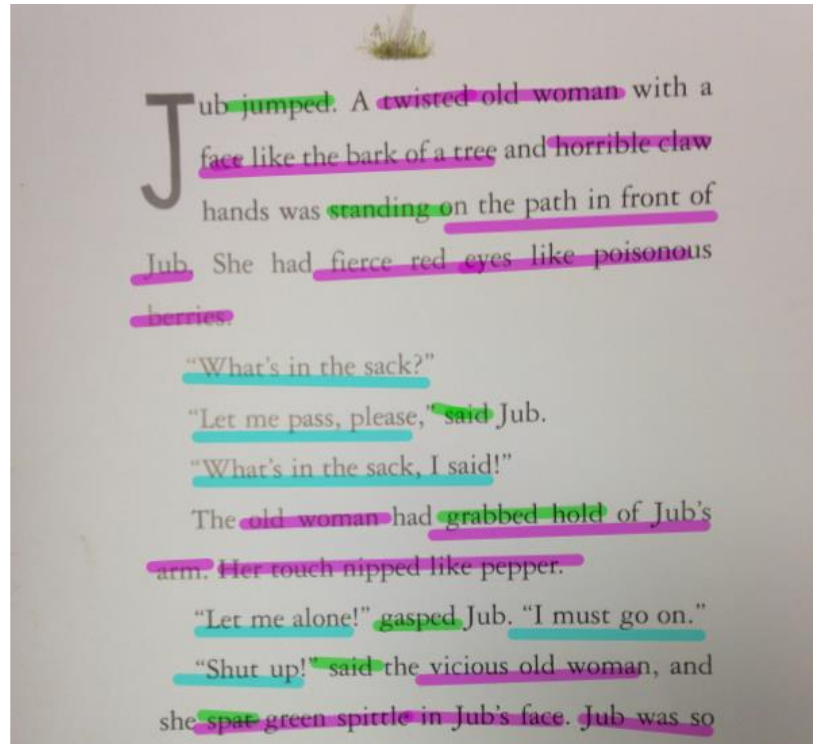 Jub jumped. A twisted old woman with a
face like the bark of a tree and horrible claw
hands was standing on the path in front of
Jub. She had fierce red eyes like poisonous
berries.
“What’s in the sack?”
“Let me pass, please,” said Jub.
“What’s in the sack, I said!”
The old woman had grabbed hold of Jub’s
arm. Her touch nipped like pepper.
“Let me alone!” gasped Jub. “I must go on.”
“Shut up!” said the vicious old woman, and
she spat green spittle in Jub’s face. Jub was so